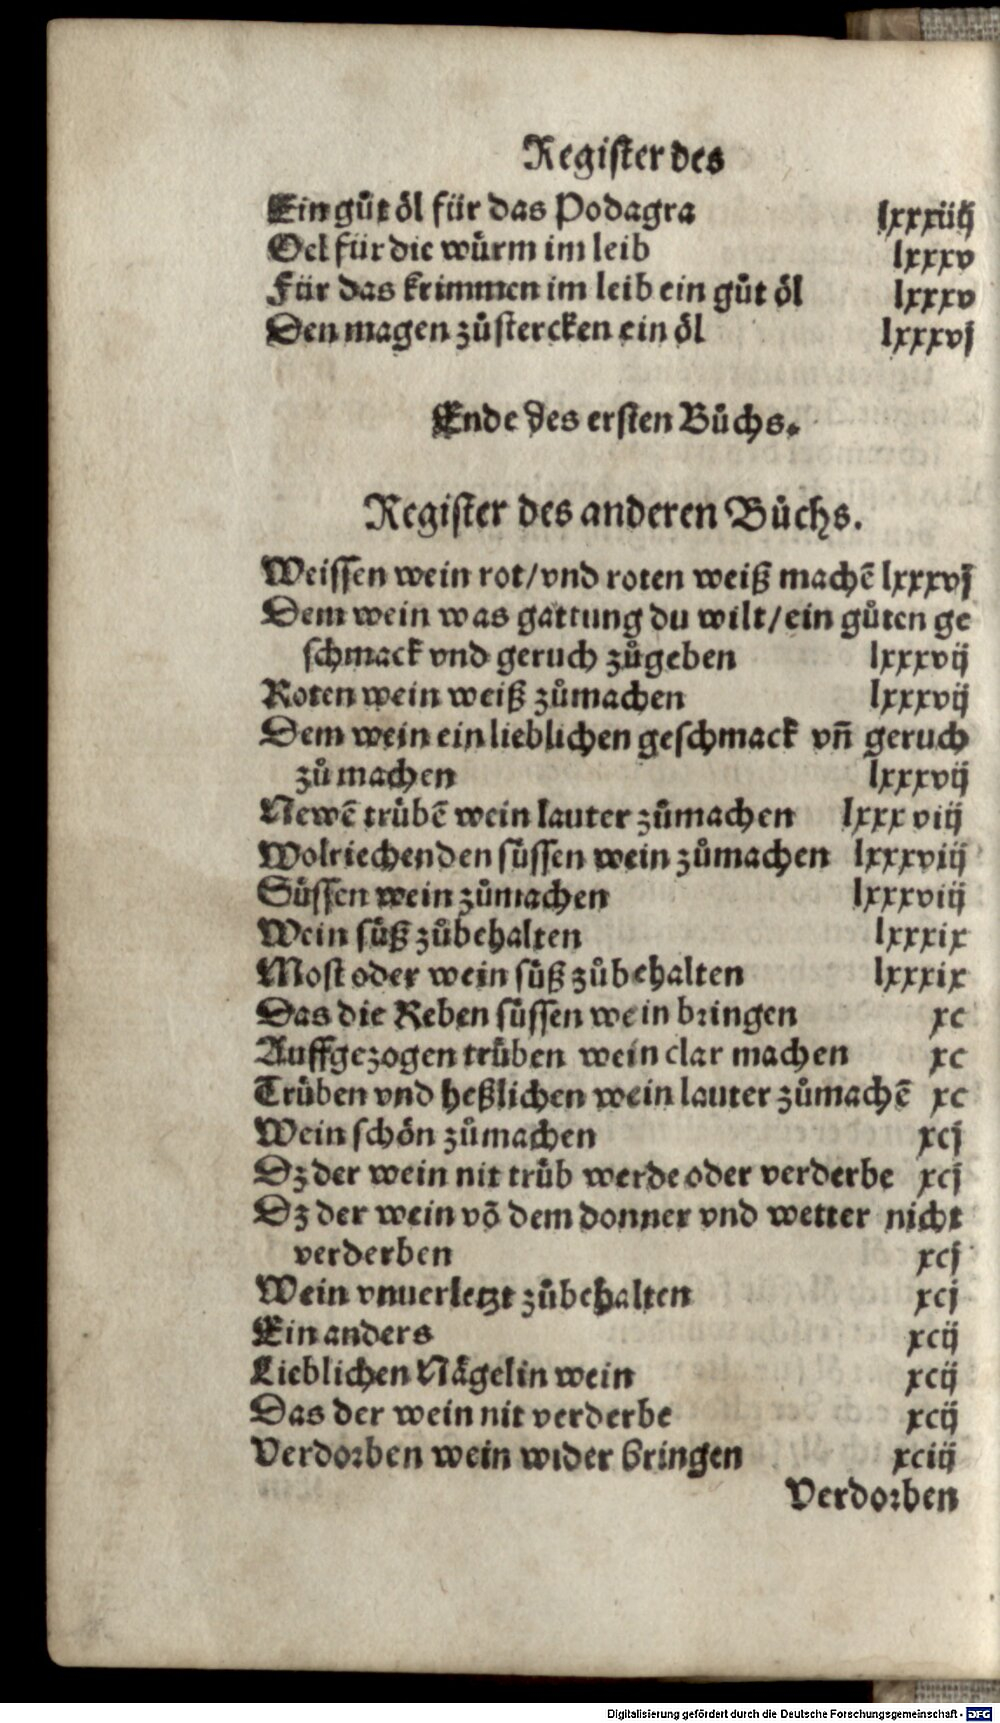 Register des
Ein gůt öl für das Podagra lxxxiiij
Oel für die würm im leib lxxxv
Für das krimmen im leib ein gůt öl lxxxv
Den magen zůstercken ein öl lxxxvj
Ende des ersten Bůchs.
Register des anderen Bůchs.
Weissen wein rot/vnd roten weiß machẽ lxxxvj
Dem wein was gattung du wilt/ein gůten ge
schmack vnd geruch zůgeben lxxxvij
Roten wein weiß zůmachen lxxxvij
Dem wein ein lieblichen geschmack vñ geruch
zů machen lxxxvij
Newẽ trübẽ wein lauter zůmachen lxxx viij
Wolriechenden süssen wein zůmachen lxxxviij
Süssen wein zůmachen lxxxviij
Wein süß zůbehalten lxxxix
Most oder wein süß zůbehalten lxxxix
Das die Reben süssen wein bringen xc
Auffgezogen trüben wein clar machen xc
Trüben vnd heßlichen wein lauter zůmachẽ xc
Wein schön zůmachen xcj
Dz der wein nit trüb werde oder verderbe xcj
Dz der wein võ dem donner vnd wetter nicht
verderben xcj
Wein vnuerletzt zůbehalten xcj
Ein anders xcij
Lieblichen Nägelin wein xcij
Das der wein nit verderbe xcij
Verdorben wein wider bringen xciij
Verdorben
Digitalisierung gefördert durch die Deutsche Forschungsgemeinschaft - DFG